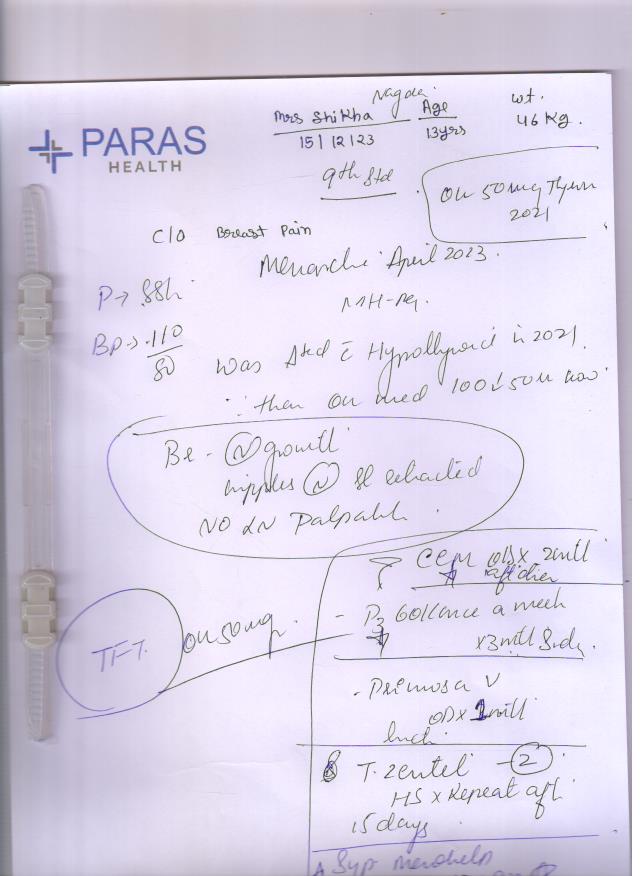 PARAS
HEALTH
Mrs Shikha Nagdai
15/12/23
Age
13yrs
wt.
46 Kg.
9th Std
On 50mg Thyrox
2021
C/O Breast Pain
Menarche April 2023.
P → 88/
MH-
BP → 110/80
Was c Hypothyroid in 2021
then on med 100 ↓ 50 now
Be - (N) growth
nipples (N) Sl retracted
NO LN Palpable.
TFT.
on 50mg.
OD x 2
aft
- D3 60K once a week
x3
- Primosa V
OD x 1
lunch
T. Zentel - (2)
HS x Repeat aft
15 days
Syp